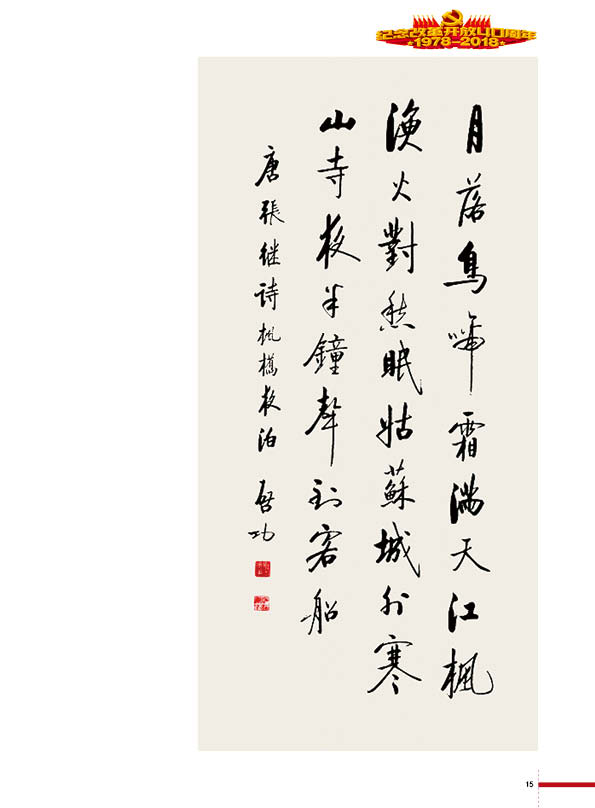 纪念改革开放40周年
1978-2018
月落烏啼霜满天江楓
渔火對愁眠姑蘇城外寒
山寺夜半鐘聲到客船
唐張继诗楓橋夜泊 启功
15